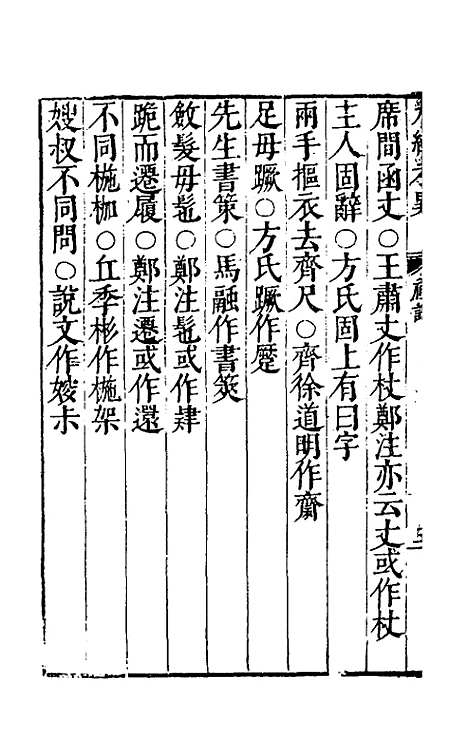 席間函丈○王肅丈作杖鄭注亦云丈或作杖
主人固辭○方氏固上有曰字
兩手摳衣去齊尺○齊徐道明作齋
足毋蹶○方氏蹶作蹙
先生書策○馬融作書筴
斂髮毋髢○鄭注髢或作肄
跪而遷屨○鄭注遷或作還
不同椸枷○丘季彬作椸架
嫂叔不同問○說文作㛮尗